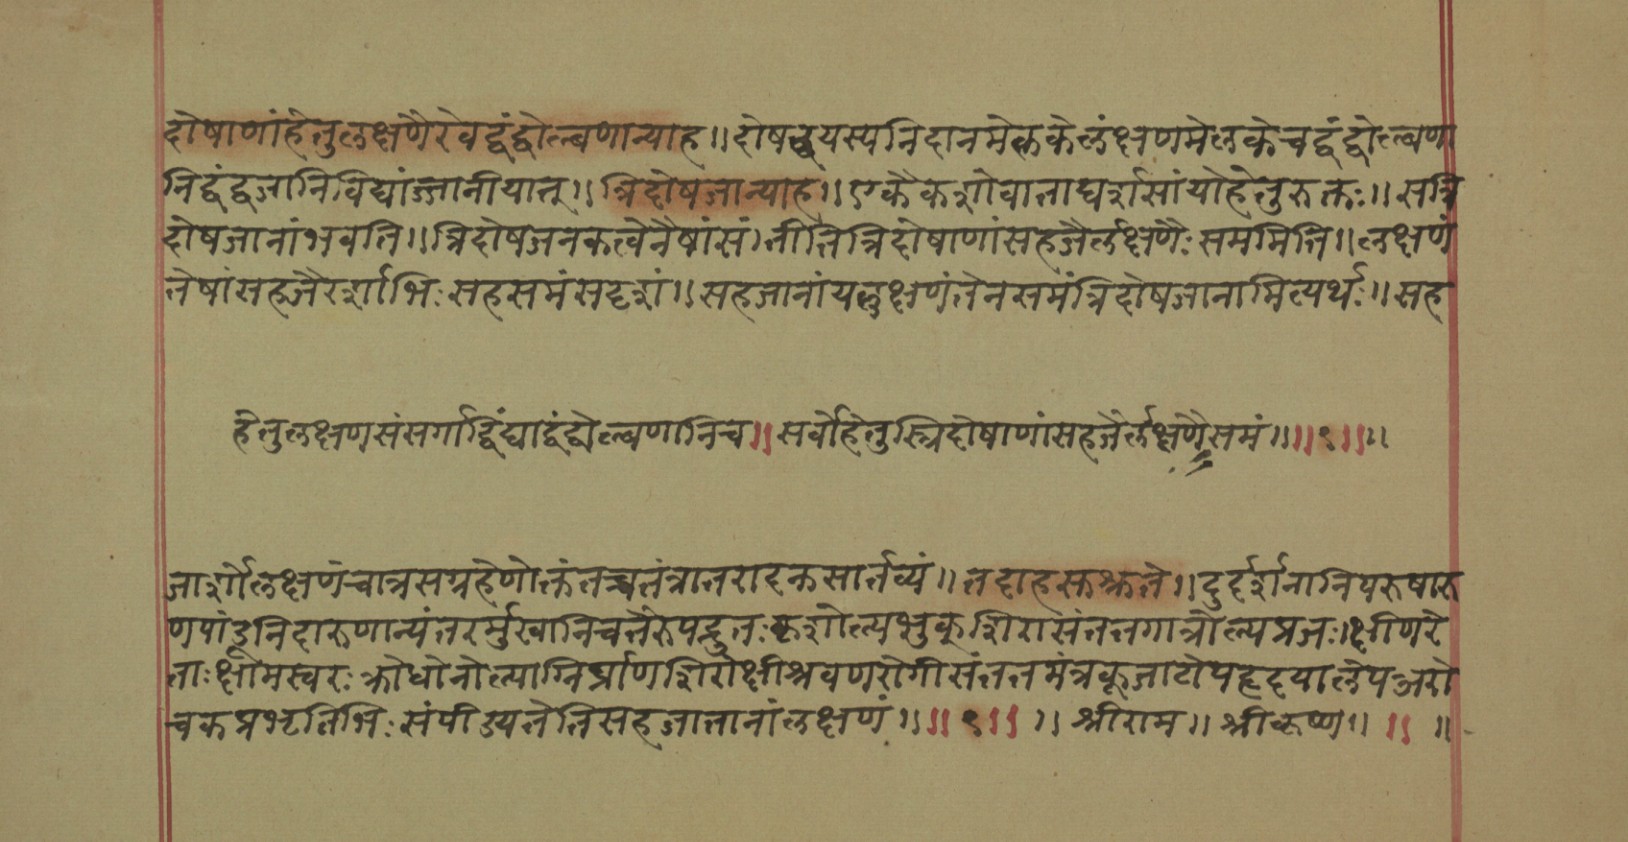 दोषाणांहेतुलक्षणैरेवद्वंद्वोल्बणान्याह॥दोषद्वयस्यनिदानमेलकेलंक्षणमेलकेचद्वंद्वोल्बणा
निद्वंद्वजानिविद्यांज्जानीयात्॥त्रिदोषजान्याह॥एकैकशोवाताद्यर्शसांयोहेतुरुक्तः॥सत्रि
दोषजानांभवति॥त्रिदोषजनकत्वेनैषांसं।तीतित्रिदोषाणांसहजैर्लक्षणैःसममिति॥लक्षणं
तेषांसहजैरर्शोभिःसहसमंसदृशं॥सहजानांयल्लक्षणंतेनसमंत्रिदोषजानामित्यर्थः॥सह
हेतुलक्षणसंसर्गाद्विंद्याद्वंद्वोल्बणानिच॥सर्वोहेतुस्त्रिदोषाणांसहजैर्लक्षणैसमं॥॥९॥॥
जार्शोलक्षणंचात्रसग्रहेणोक्तंतच्चतंत्रातरादनुसार्तव्यं॥तदाहसुश्रुते॥दुर्दर्शनानिपरुषारु
णपांडुनिदारुणान्यंतरर्मुखानिचतैरुपद्रुतःकृशोल्पभुक्शिरासंततगात्रोल्पप्रजः।क्षीणरे
ताःक्षामस्वरःक्रोधोनोल्पाग्निर्घ्राणशिरोक्षीश्रवणरोगीसंततमंत्रकूजाटोपहृदयालेपअरो
चकप्रभृतिभिःसंपीड्यतेतिसहजातानांलक्षणं॥॥९॥॥श्रीराम॥श्रीकृष्ण॥॥॥